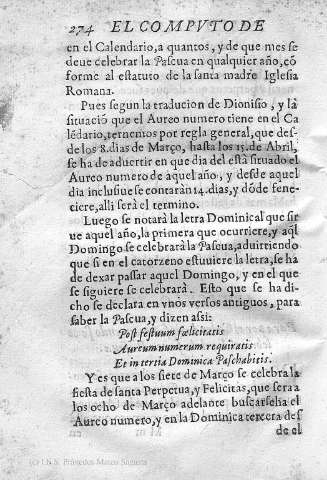 274 EL COMPVTO DE
en el Calendario, a quantos, y de que mes se
deue celebrar la Pascua en qualquier año, cõ
forme al estatuto de la santa madre Iglesia
Romana.
Pues segun la traducion de Dionisio, y la
situació que el Aureo numero tiene en el Ca
lẽdario, ternemos por regla general, que des-
de los 8. dias de Março, hasta los 15. de Abril,
se ha de aduertir en que dia del està situado el
Aureo numero de aquel año, y desde aquel
dia inclusiue se contaràn 14. dias, y dóde fene-
ciere, alli serà el termino.
Luego se notarà la letra Dominical que sir
ue aquel año, la primera que ocurriere, y aql
Domingo se celebrarà la Pascua, aduirtiendo
que si en el catorzeno estuuiere la letra, se ha
de dexar passar aquel Domingo, y en el que
se siguiere se celebrarà. Esto que se ha di-
cho se declara en vnos versos antiguos, para
saber la Pascua, y dizen assi:
Post festuum fœlicitatis
Aureum numerum requiratis
Et in tertia Dominica Paschabitis.
Y es que a los siete de Março se celebra la
fiesta de santa Perpetua, y Felicitas, que sera a
los ocho de Março adelante buscarseha el
Aureo numero, y en la Dominica tercera des
de el
(c) I.N.S. Práxedes Mateo Sagasta